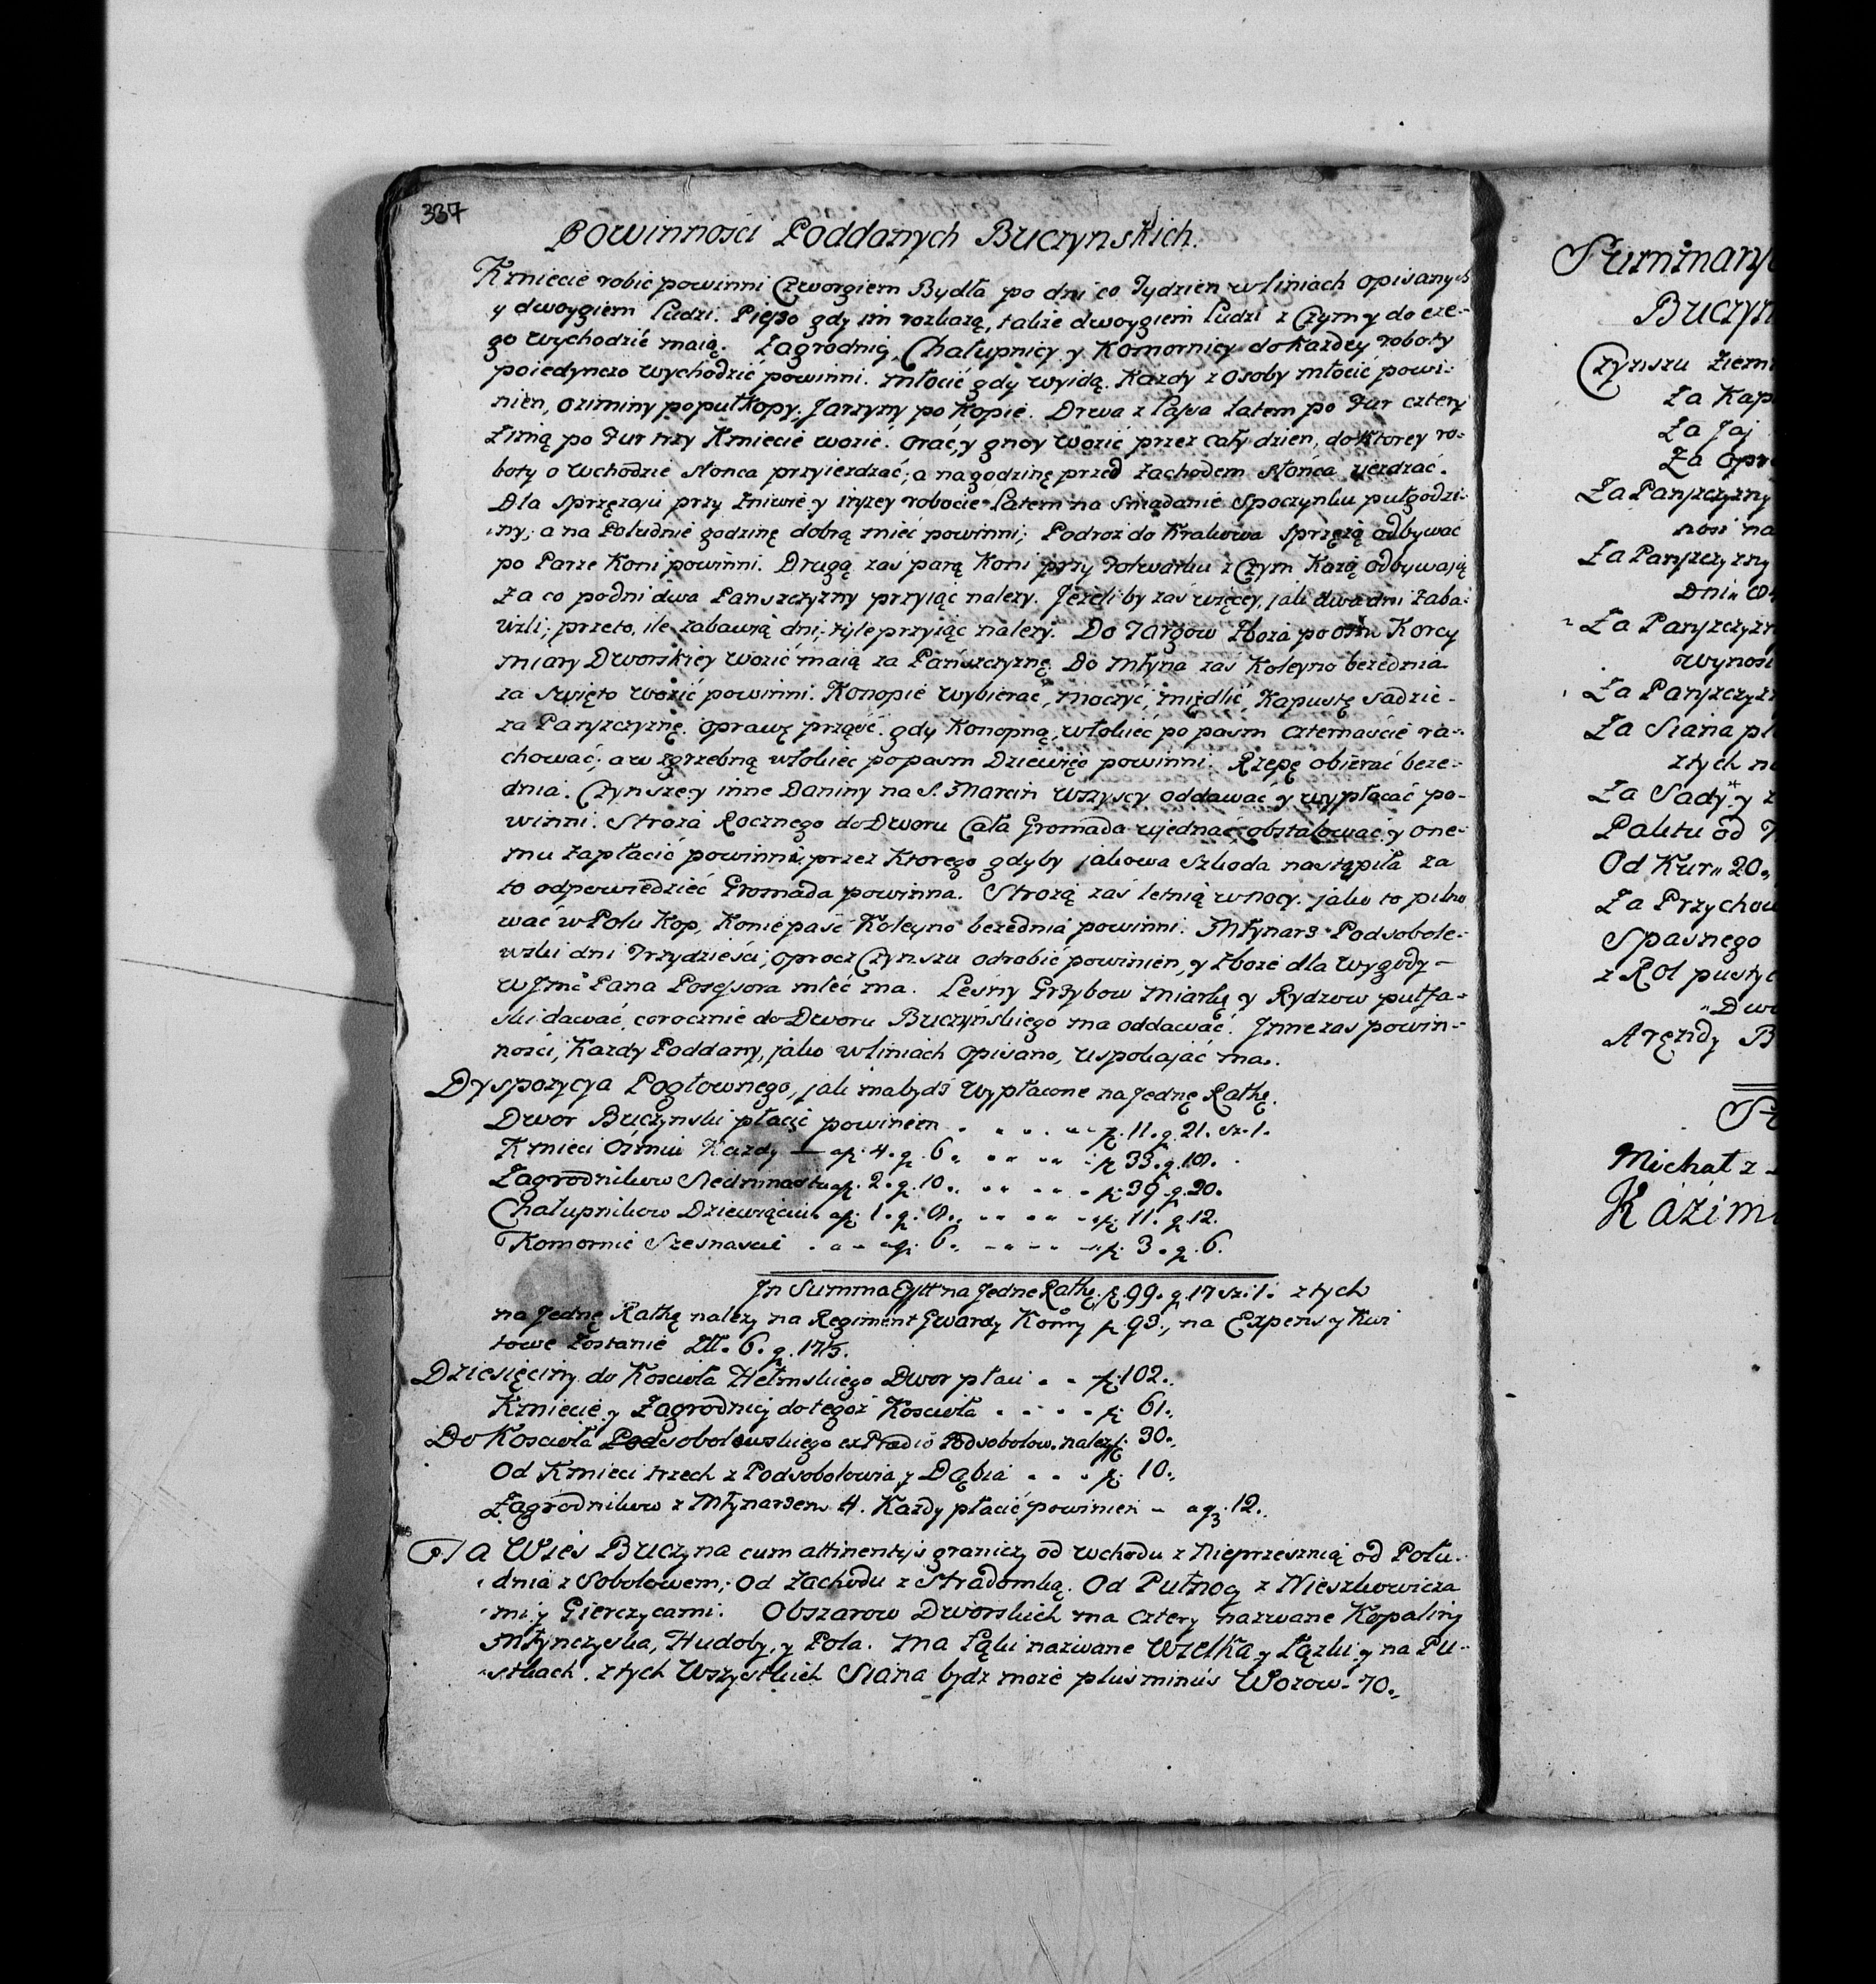 337
Powinnosci Poddanych Buczynskich.
Kmiecie robić powinni Czworgiem Bydła po dni co Tydzien w liniach opisanych
y dwoygiem Ludzi. Pieszo gdy im rozkażą, także dwoygiem Ludzi z Czym y do cze-
go wychodzić maią. Zagrodnicy, Chałupnicy y Komornicy do każdey roboty
poiedynczo wychodzić powinni. młocić gdy wyidą. Kazdy z Osoby młocić powi-
nien, oziminy po puł Kopy, Jarzyny po Kopie. Drwa z Lassa Latem po Fur cztery
Zimą po Fur trzy Kmiecie wozić. orać, y gnoy wozić przez cały dzien, do Ktorey ro-
boty o wchodzie słonca przyiezdzać; a na godzinę przed Zachodem słońca zjezdzać.
Dla sprzęzaju przy Zniwie y inszey robocie Latem na sniadanie Spoczynku puł godzi-
iny; a na Południe godzinę dobrą mieć powinni; Podroz do Krakowa sprzęzą odbywac
po Parze Koni powinni. Drugą zaś parą Koni przy Folwarku z Czym Każą odbywaią
Za co po dni dwa Panszczyzny przyiąc nalezy. Jeżeli by zaś więcey, jak dwa dni zaba-
wili; przeto, ile zabawią dni, tyle przyiąc nalezy. Do Targow Zboża po osm Korcy
miary Dworskiey wozić maią za Pańszczyznę. Do młyna zaś Koleyno bezednia
za Swięto wozić powinni. Konopie wybierac, moczyć, międlić, Kapustę sadzić-
za Panszczyznę. oprawę prząść gdy Konopną, w łokieć po pasm czternaście ra-
chować; a w zgrzebną w łokiec po pasm Dziewięć powinni. Rzepę obierać beze-
dnia. Czynsze y inne Daniny na S. Marcin wszyscy oddawać y wypłacać po-
winni. Stroża Rocznego do Dworu Cała Gromada ujednać obstalować y one-
mu zapłacić powinni, przez Ktorego gdyby jakowa szkoda nastąpiła za
to odpowiedzieć Gromada powinna. Strożą zaś letnią w nocy. jako to pilno
wać w Polu Kop, Konie paść Koleyno bezednia powinni. Młynarz Podsobole-
wski dni Trzydzieści, oprocz Czynszu odrobić powinien, y zboże dla wygody-
W Jmć Pana Posessora mleć ma. Leśny Grzybow miarkę y Rydzow pułfa-
ski dawać, corocznie do Dworu Buczyńskiego ma oddawać. Jnne zas powin-
ności, Kazdy Poddany, jako w liniach opisano, uspokajać ma.
Dyspozycya Pogłownego, jak ma bydź wypłacone na Jednę Rathę.
Dwor Buczynski płacić powinien . . . . . f. 11. g. 21. sz. 1.
Kmieci Ośmiu Kazdy — a f. 4. g. 6. . . . . f. 33. g. 18.
Zagrodnikow Siedmnastu a f. 2. g. 10. . . . . f. 39. g. 20.
Chałupnikow Dziewiąciu a f. 1. g. 8. . . . . f. 11. g. 12.
Komornic Szesnascie . . . a g. 6. . . . . f. 3. g. 6.
Jn Summa Czyni na Jedne Rathę f. 99. g. 17 sz. 1. z tych
na Jednę Rathę nalezy na Regiment Gwardy Konny f. 93., na Expens y Kwi
towe Zostanie Zll. 6. g. 17/3.
Dziesięciny do Kosciła Hełmskiego Dwor płaci . . f. 102.
Kmiecie y Zagrodnicy do tegoż Kosciła . . . . f. 61.
Do Kosciła Podsobolowskiego ex Praedio Podsobolow. nalezy f. 30.
Od Kmieci trzech z Podsobolowia y Dąbia . . . f. 10.
Zagrodnikow z Młynarzem 4. Kazdy płacić powinien - a g. 12.
Ta Wieś Buczyna cum attinentys graniczy od wchodu z Nieprzesznią od Połu-
dnia z Sobolowem; Od Zachodu z Stradomką. Od Pułnocy z Nieszkowicza
mi y Gierczycami. Obszarow Dworskich ma cztery nazwane Kopaliny
Młynczyska, Hudoby, y Pola. ma Łąki nazwane Wielka y Łązki y na Pu-
stkach. z tych Wszystkich Siana bydz może plus minus Wozow - 70.
Summary
Buczyn
Czynszu Ziem
Za Kap
Za Jaj
Za opr
Za Panszczyzny
nosi na
Za Panszczyzny
Dni
Za Panszczyzn
wynosi
Za Panszczyz
Za Siana
z tych
Za Sady y
Paktu od
Od Kur 20.
Za Przychow
Spasnego
z Rol pusty
Dwo
Arendy B
Michał z
Kazim